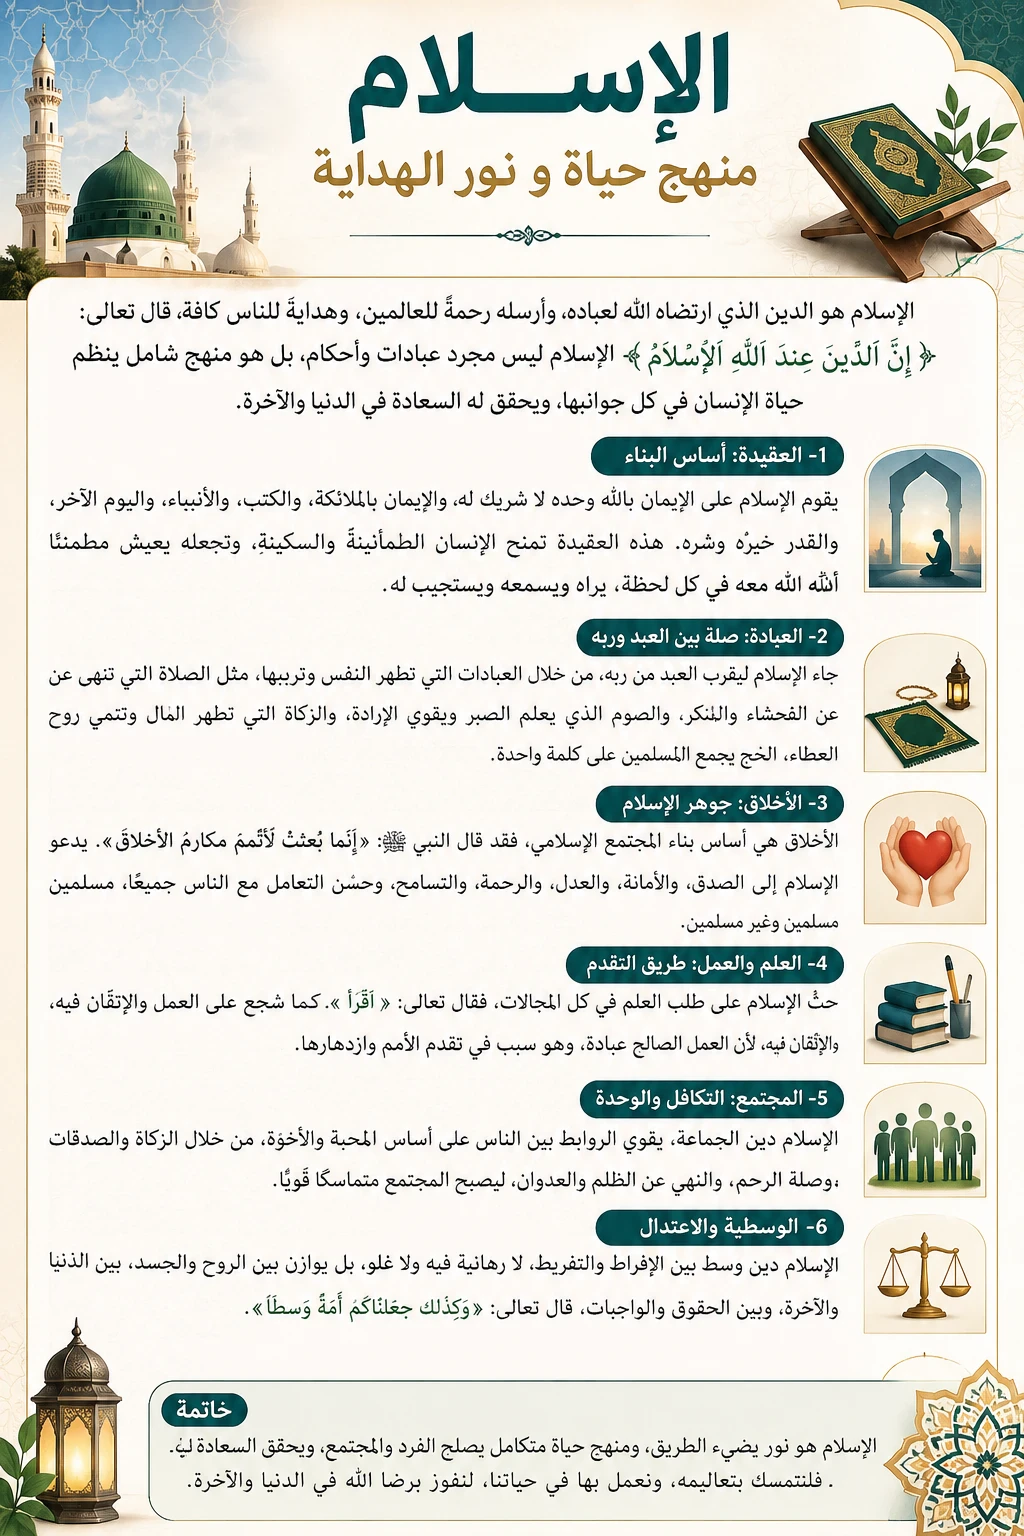 الإســـلام
منهج حياة و نور الهداية
الإسلام هو الدين الذي ارتضاه الله لعباده، وأرسله رحمةً للعالمين، وهدايةً للناس كافة، قال تعالى:
﴿ إِنَّ اَلدَّينَ عِندَ اَللهِ اَلْإِسْلَامُ ﴾ الإسلام ليس مجرد عبادات وأحكام، بل هو منهج شامل ينظم
حياة الإنسان في كل جوانبها، ويحقق له السعادة في الدنيا والآخرة.
1- العقيدة: أساس البناء
يقوم الإسلام على الإيمان بالله وحده لا شريك له، والإيمان بالملائكة، والكتب، والأنبياء، واليوم الآخر،
والقدر خيرْه وشره. هذه العقيدة تمنح الإنسان الطمأنينةً والسكينةِ، وتجعله يعيش مطمئنًا
ألله الله معه في كل لحظة، يراه ويسمعه ويستجيب له.
2- العبادة: صلة بين العبد وربه
جاء الإسلام ليقرب العبد من ربه، من خلال العبادات التي تطهر النفس وترببها، مثل الصلاة التي تنهى عن
عن الفحشاء والمنكر، والصوم الذي يعلم الصبر ويقوي الإرادة، والزكاة التي تطهر المال وتتمي روح
العطاء، الخج يجمع المسلمين على كلمة واحدة.
3- الأخلاق: جوهر الإسلام
الأخلاق هي أساس بناء المجتمع الإسلامي، فقد قال النبي ﷺ: «إَنَما بُعثتْ لَأتَممَ مكارمُ الأخلاقَ». يدعو
الإسلام إلى الصدق، والأمانة، والعدل، والرحمة، والتسامح، وحسْن التعامل مع الناس جميعًا، مسلمين
مسلمين وغير مسلمين.
4- العلم والعمل: طريق التقدم
حثْ الإسلام على طلب العلم في كل المجالات، فقال تعالى: « اَقَرَأ ». كما شجع على العمل والإتقَان فيه،
والإتْقان فيه، لأن العمل الصالح عبادة، وهو سبب في تقدم الأمم وازدهارها.
5- المجتمع: التكافل والوحدة
الإسلام دين الجماعة، يقوي الروابط بين الناس على أساس المحبة والأخوّة، من خلال الزكاة والصدقات
،وصلة الرحم، والنهي عن الظلم والعدوان، ليصبح المجتمع متماسكًا قَويًّا.
6- الوسطية والاعتدال
الإسلام دين وسط بين الإفراط والتفريط، لا رهانية فيه ولا غلو، بل يوازن بين الروح والجسد، بين الدنيا
والآخرة، وبين الحقوق والواجبات، قال تعالى: «وَكِذْلك جعَلنْاكَمْ أَمَةً وَسطَاً».
خاتمة
الإسلام هو نور يضيء الطريق، ومنهج حياة متكامل يصلح الفرد والمجتمع، ويحقق السعادة
. فلنتمسك بتعاليمه، ونعمل بها في حياتنا، لنفوز برضا الله في الدنيا والآخرة.